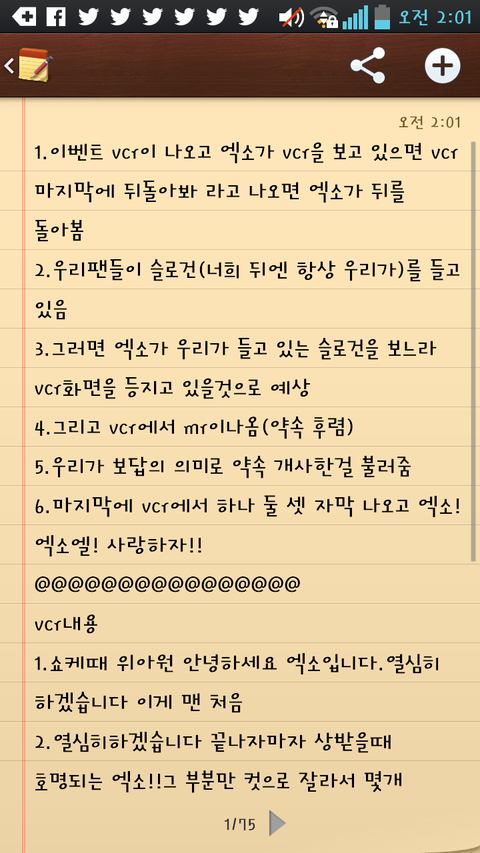 오전 2:01
오전 2:01
1.이벤트 vcr이 나오고 엑소가 vcr을 보고 있으면 vcr
마지막에 뒤돌아봐 라고 나오면 엑소가 뒤를
돌아봄
2.우리팬들이 슬로건(너희 뒤엔 항상 우리가)를 들고
있음
3.그러면 엑소가 우리가 들고 있는 슬로건을 보느라
vcr화면을 등지고 있을것으로 예상
4.그리고 vcr에서 mr이나옴(약속 후렴)
5.우리가 보답의 의미로 약속 개사한걸 불러줌
6.마지막에 vcr에서 하나 둘 셋 자막 나오고 엑소!
엑소엘! 사랑하자!!
@@@@@@@@@@@@@@@@
vcr내용
1.쇼케때 위아원 안녕하세요 엑소입니다.열심히
하겠습니다 이게 맨 처음
2.열심히하겠습니다 끝나자마자 상받을때
호명되는 엑소!!그 부분만 컷으로 잘라서 몇개
1/75